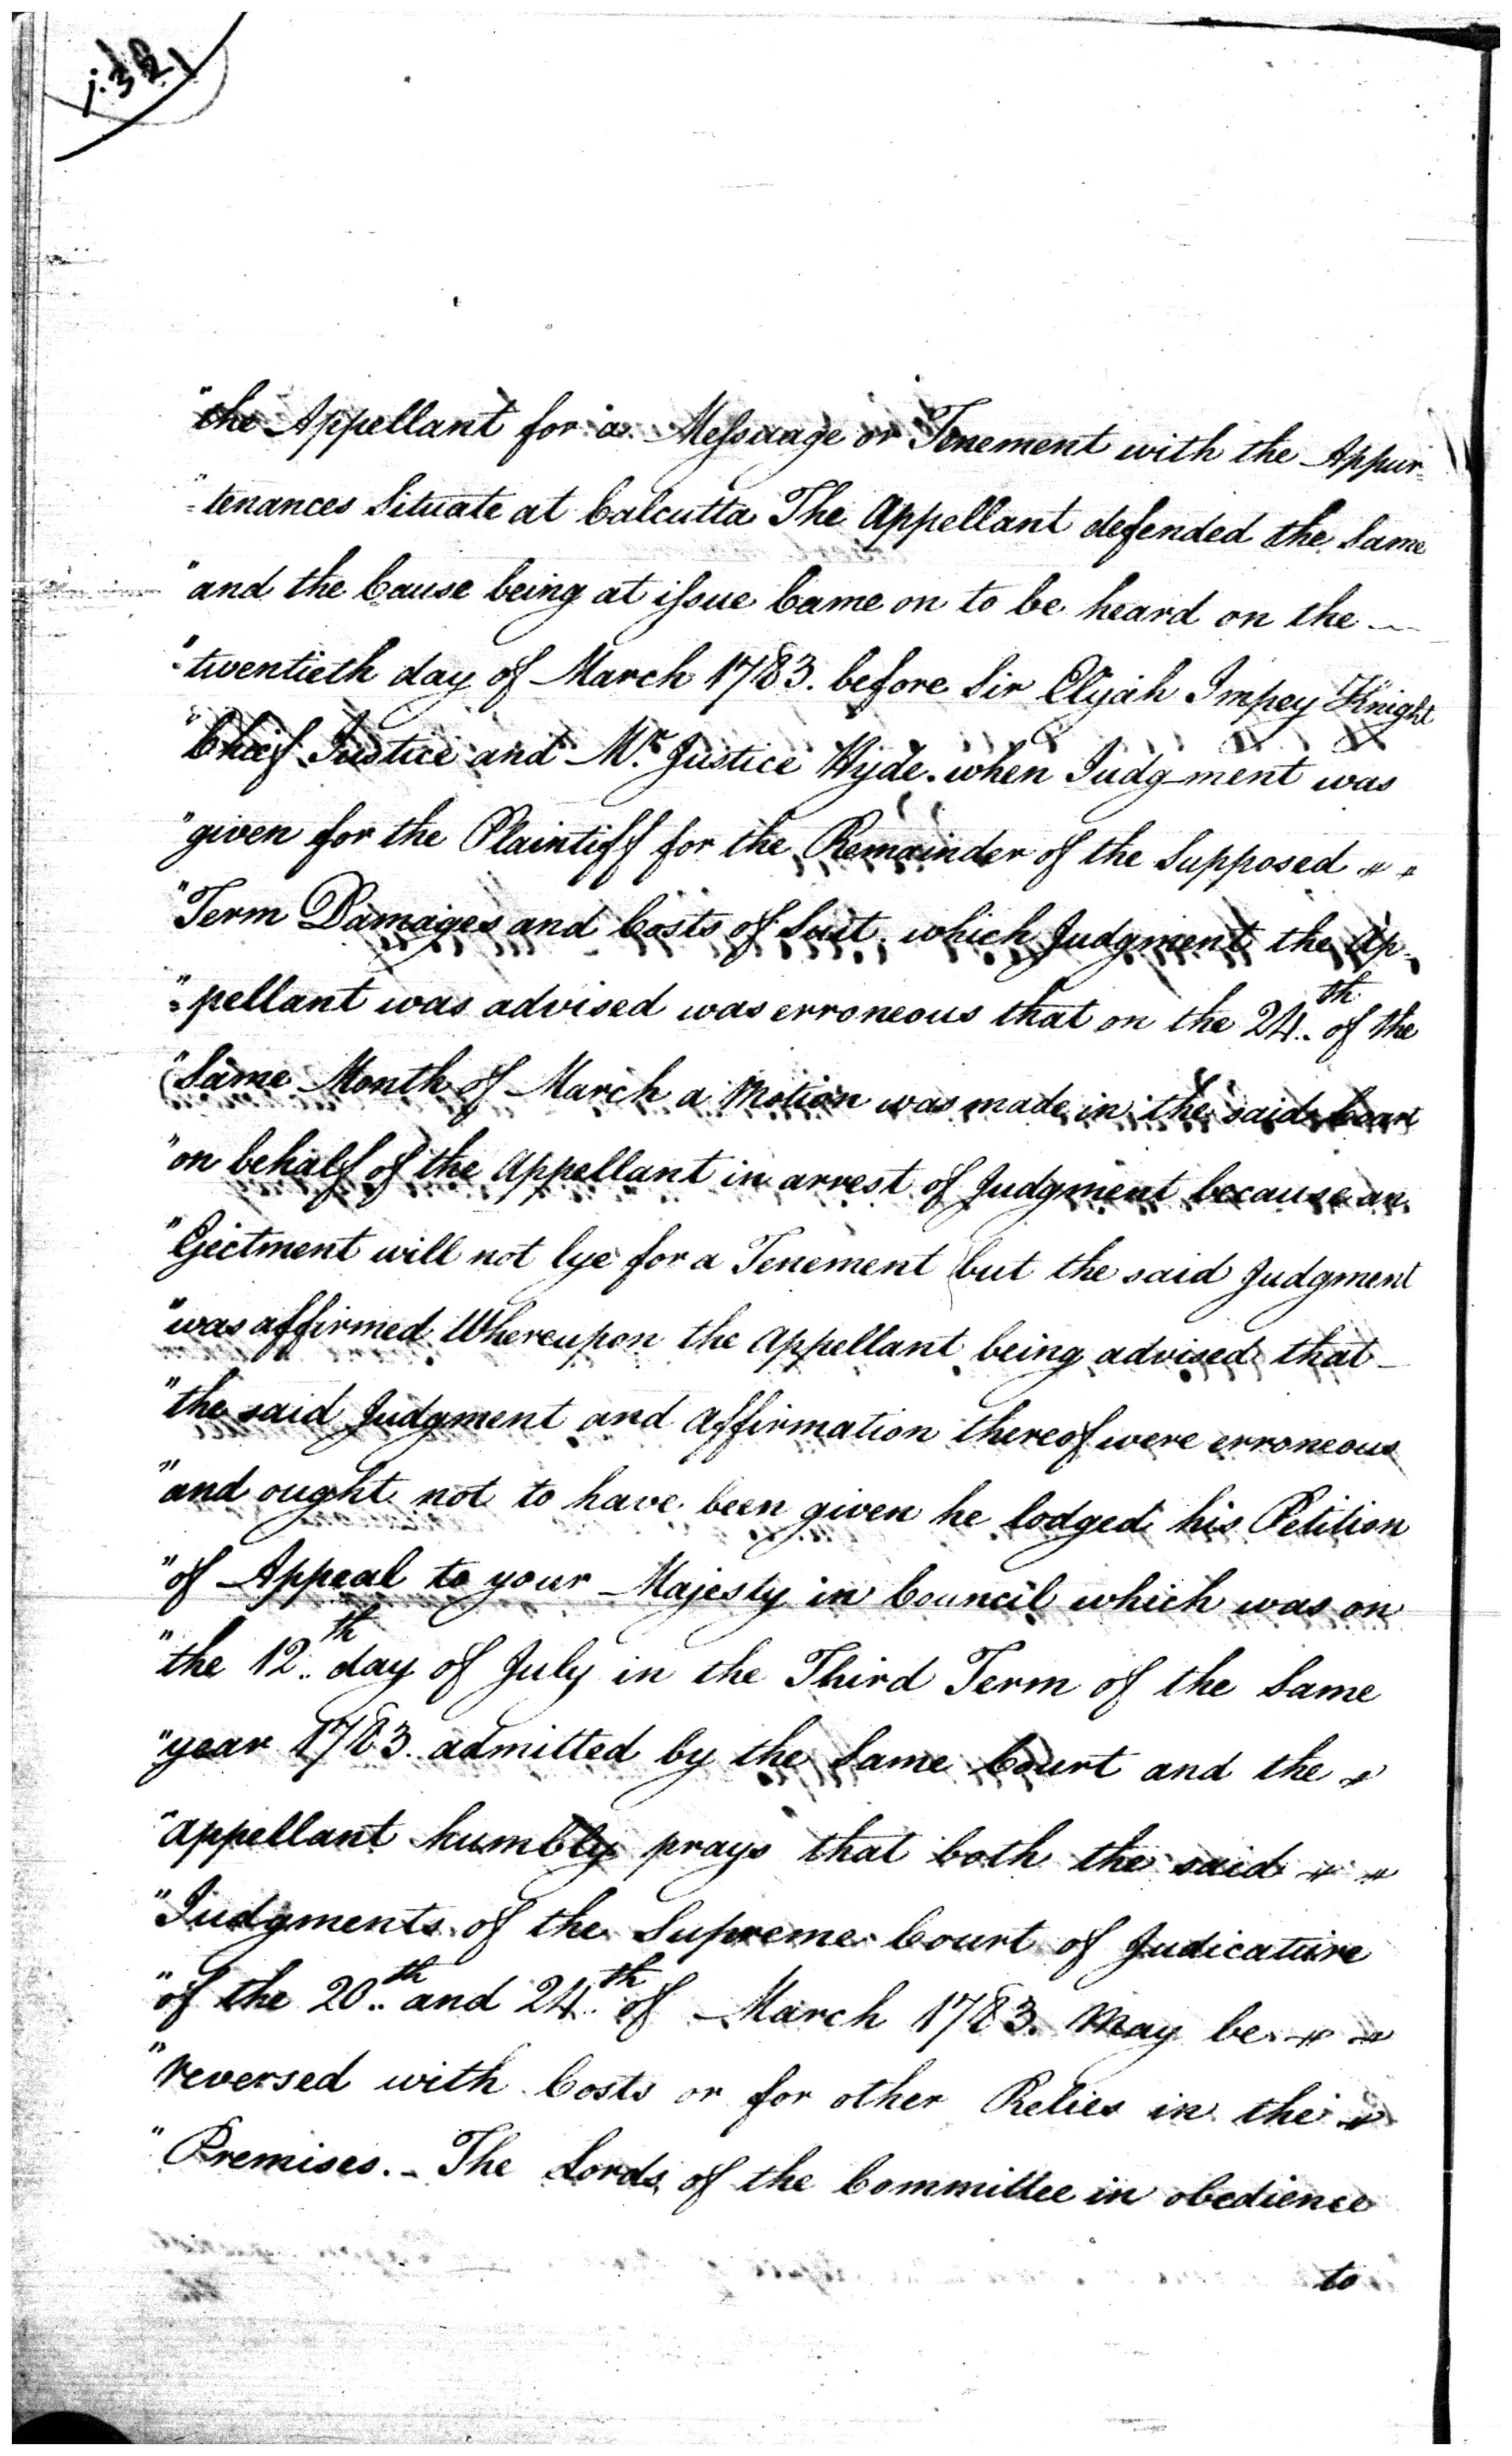 "the Appellant for a Messuage or Tenement with the Appur-
"-tenances Situate at Calcutta The Appellant defended the Same
"and the Cause being at issue Came on to be heard on the
"twentieth day of March 1783. before Sir Elijah Impey Knight
"Chief Justice and Mr. Justice Hyde. when Judgment was
"given for the Plaintiff for the Remainder of the Supposed
"Term Damages and Costs of Suit. which Judgment the Ap-
"-pellant was advised was erroneous that on the 24th of the
"Same Month of March a Motion was made in the said Court
"on behalf of the Appellant in arrest of Judgment because an
"Ejectment will not lye for a Tenement but the said Judgment
"was affirmed Whereupon the Appellant being advised that
"the said Judgment and affirmation thereof were erroneous
"and ought not to have been given he lodged his Petition
"of Appeal to your Majesty in Council which was on
"the 12th day of July in the Third Term of the Same
"year 1783. admitted by the Same Court and the
"appellant humbly prays that both the said
"Judgments of the Supreme Court of Judicature
"of the 20th and 24th of March 1783. May be
"reversed with Costs or for other Relief in the
"Premises. - The Lords of the Committee in obedience
to